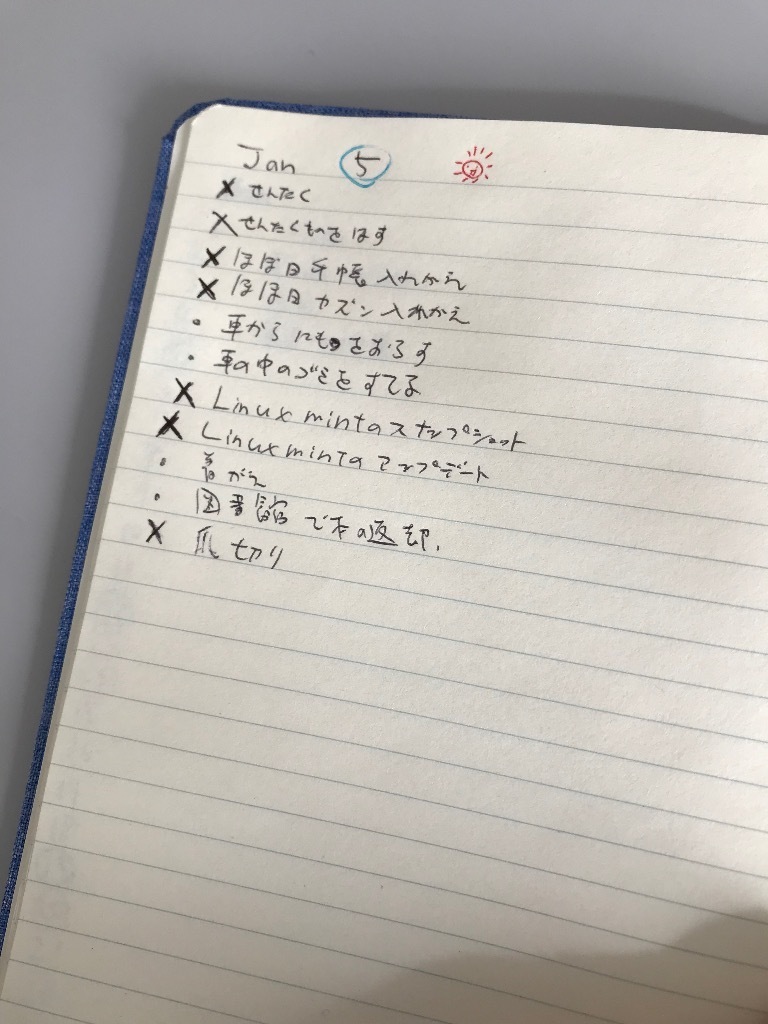 Jan 5
× せんたく
× せんたくものをほす
× ほぼ日手帳 入れかえ
× ほぼ日カズン入れかえ
・ 車からにもつをおろす
・ 車の中のゴミをすてる
× Linux mintのスナップショット
× Linux mintのアップデート
・ 着がえ
・ 図書館で本の返却.
× 爪切り